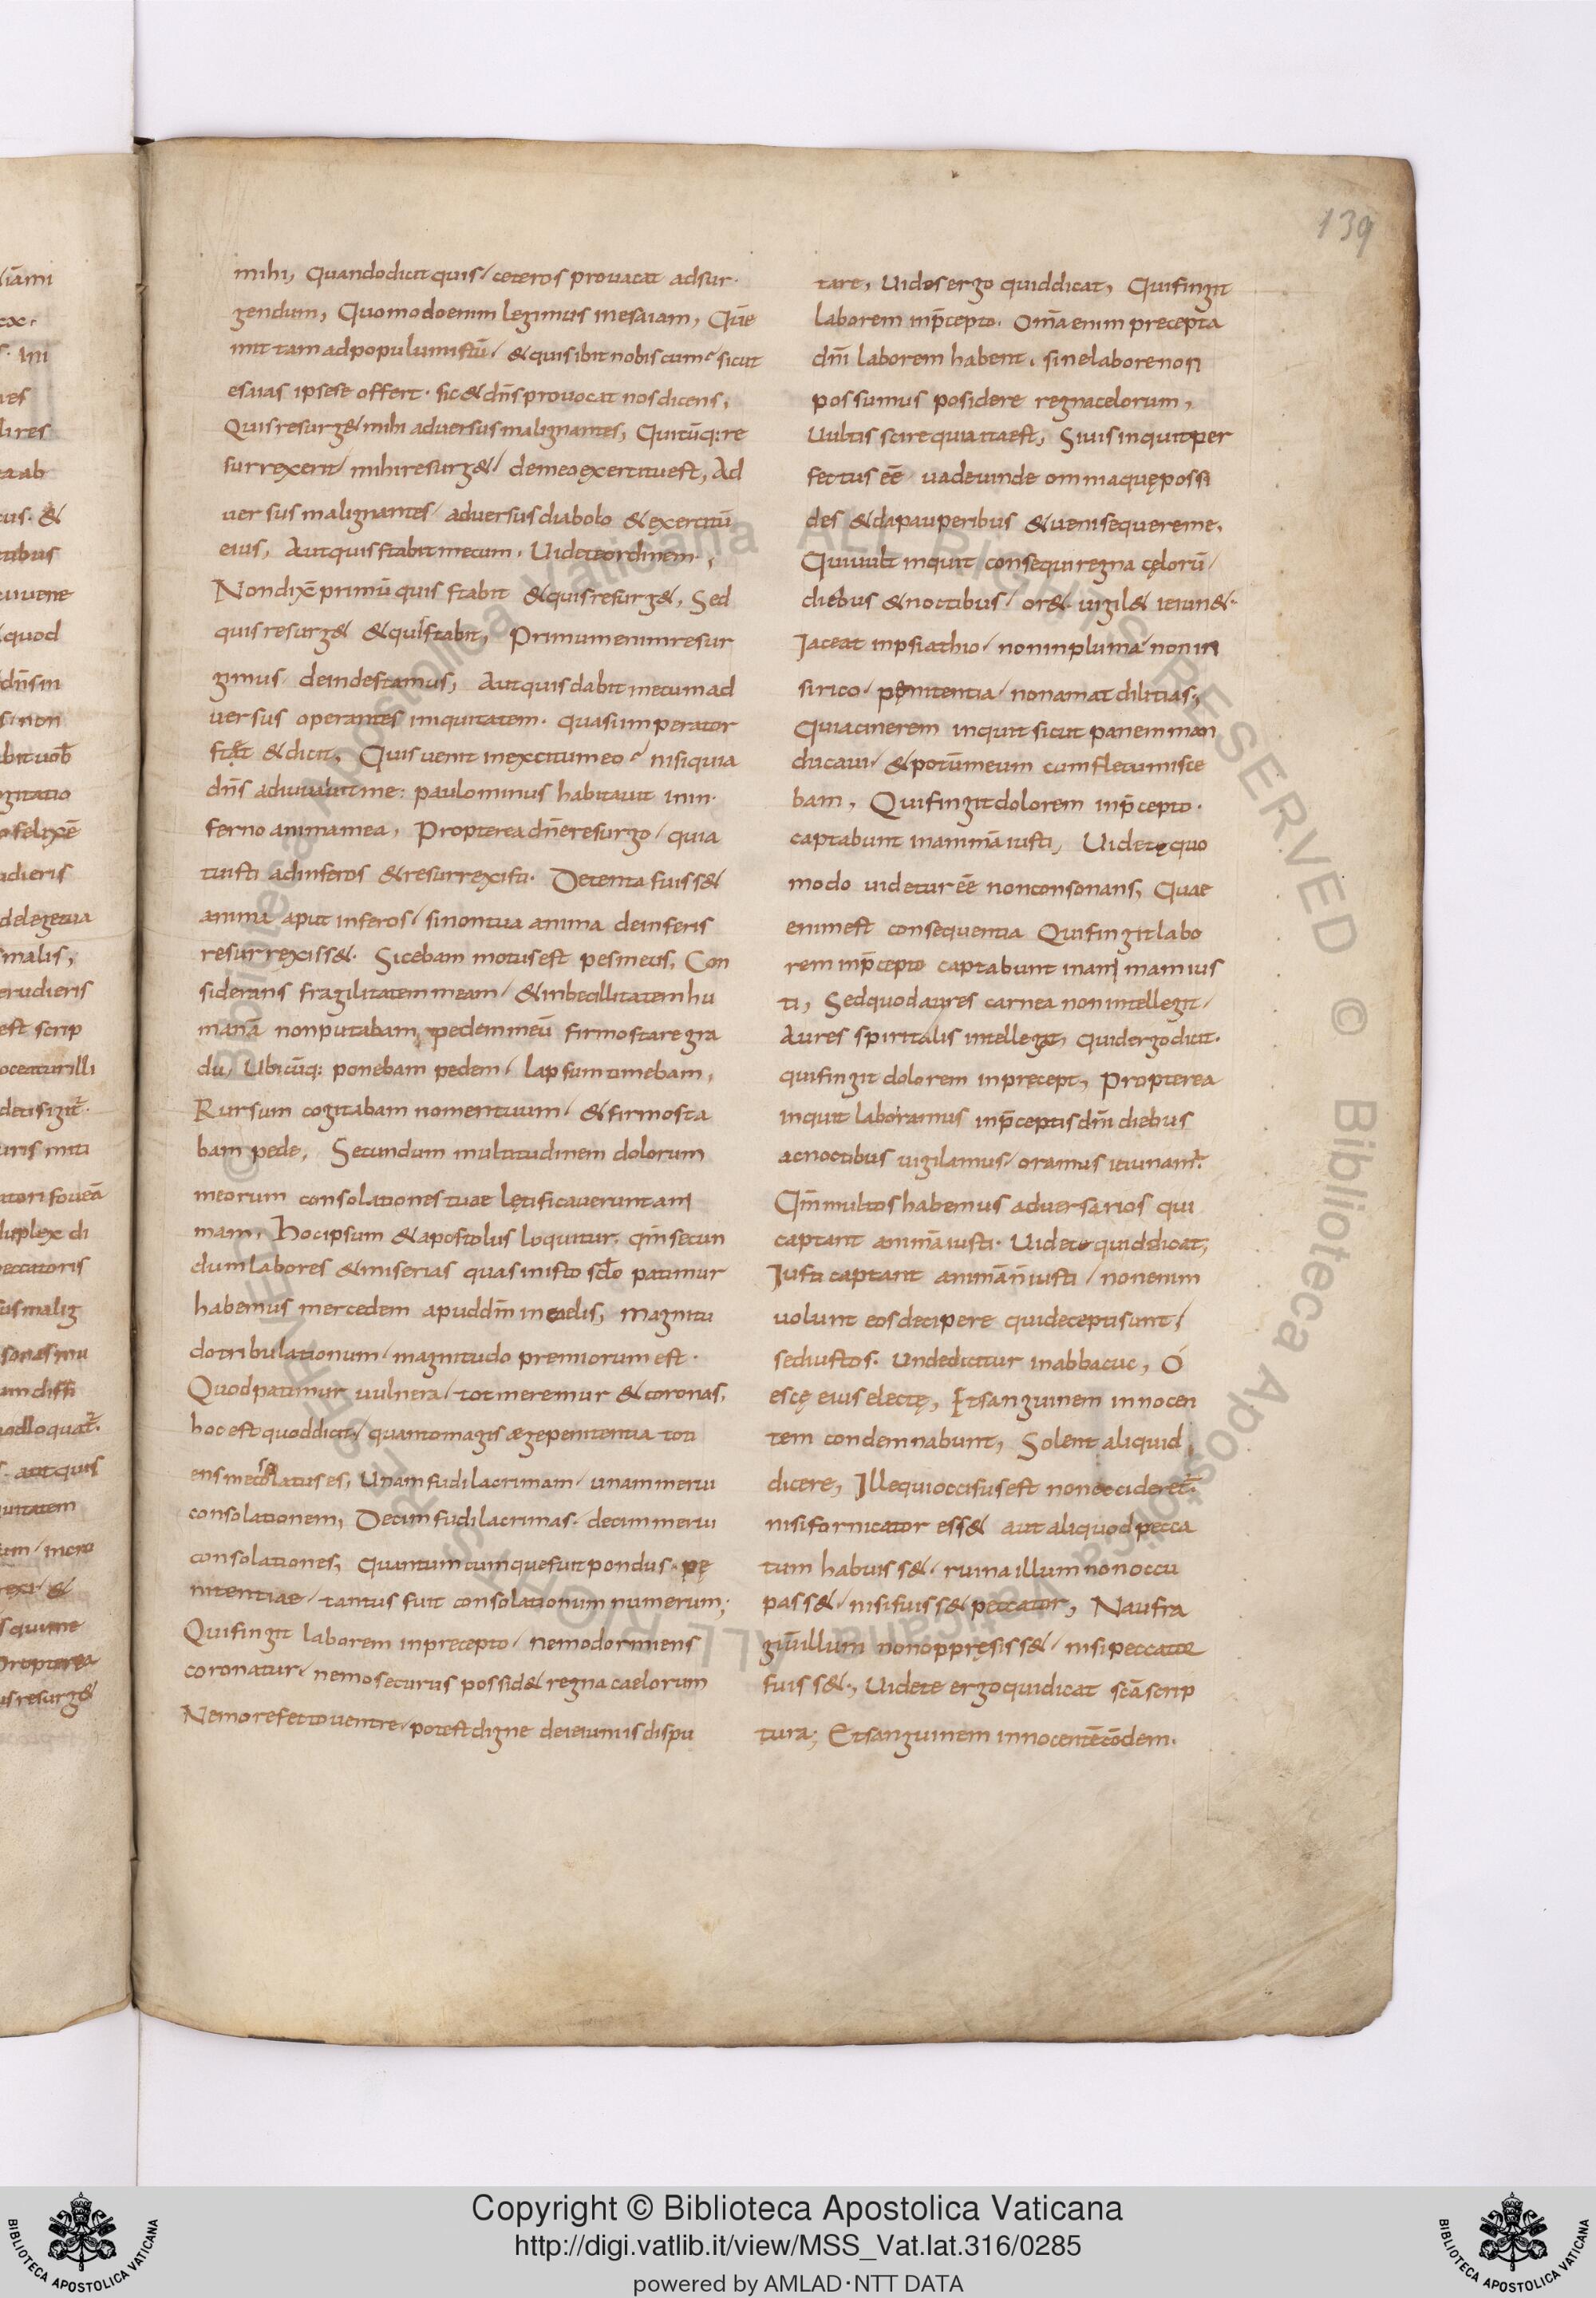 139
mihi, Quandodicit quis/ ceteros provacat adsur·
gendum, Quomodoenim legimus inesaiam, Quē
mit tam adpopulumistū/ &quisibit nobiscum/ sicut
esaias ipsese offert· sic&dn̄s provocat nos dicens,
Quisresurg& mihi adversus malignantes, Quicūq: re
surrexerit/ mihi resurg&/ demeo exercitu est, Ad
versus malignantes/ adversus diabolo &exercitū
eius, Aut quis stabit mecum, Uideteordinem·,
Nondix̄ primū quis stabit &quisresurg&, Sed
quis resurg& &quisstabit, Primumenimresur
gimus/ deindestamus, Aut quis dabit mecum ad
versus operantes iniquitatem· quasi imperator
stat &dicit, Quis venit inexcitumeo/ nisi quia
dn̄s adiuvabit me: paulominus habitavit inin·
ferno animamea, Propterea dn̄eresurgo/ quia
tuisti adinferos &resurrexisti· Detenta fuiss&
anima aput inferos/ sinontua anima deinferis
resurrexiss&· Sicebam motus est pesmeus, Con
siderans fragilitatem meam/ &inbecillitatem hu
manā nonputabam, pedem meū firmostare gra
du, Ubicūq: ponebam pedem/ lapsumtimebam,
Rursum cogitabam nomentuum/ &firmosta
bam pede, Secundum multitudinem dolorum
meorum consolationes tuae lętificaverunt ani
mam, Hocipsum &apostolus loquitur, qm̄ secun
dumlabores &miserias quas inisto scl̄o patimur
habemus mercedem apuddm̄ incaelis, magnitu
dotribulationum/ magnitudo premiorum est·
Quodpatimur vulnera/ tot meremur &coronas,
hoc est quoddicit/ quantomagis ægepenitentia toti
ens mecsolatus es, Unam fudi lacrimam/ unam merui
consolationem, Decim fudi lacrimas· decim merui
consolationes, Quantumcumquefuit pondus· pę
nitentiae/ tantus fuit consolationum numerum;
Qui fingit laborem inprecepto/ nemodormiens
coronatur/ nemosecurus possid& regna caelorum
Nemorefectoventre/ potest digne deieiuniis dispu
tare, Uidesergo quiddicat, Quifingit
laborem inp̄cepto· Om̄a enim precepta
dn̄i laborem habent, sinelaborenon
possumus posidere regnacelorum,
Uultis scire quia ita est, Si vis inquit per
fectus eē/ vade vinde omniaquęposſi
des &dapauperibus &veni sequere me,
Qui vult inquit consequiregna cęlorū/
diebus &noctibus/ or& vigil& ieiun&·
Jaceat inpsiathio/ noninpluma/ nonin
sirico/ pęnitentia/ nonamat dilitias,
Quiacinerem inquit sicut panemman
ducavi/ &potūmeum cumfletumisce
bam, Quifingit dolorem inp̄cepto·
captabunt inanimā iusti, Uidetequo
modo videtur eē nonconsonans, Quae
enimest consequentia Quifingit labo
rem inp̄cepto captabunt inanimam ius
ti, Sedquodaures carnea nonintellegit/
Aures spiritalis intellegit, Quidergodicit·
quifingit dolorem inprecept, Propterea
inquit laboramus inp̄ceptis dn̄i diebus
acnoctibus vigilamus/ oramus ieiunam:
Qm̄ multos habemus adversarios qui
captant animā iusti· Uidete quiddicat,
Justi captant animān̄iusti/ nonenim
volunt eos decipere quideceptisunt/
sediustos· Undedicitur inabbacuc, Ó
escę eius electę, Etsanguinem innocen
tem condemnabunt, Solent aliquid
dicere, Illequioccisus est nonoccideret:
nisifornicator ess& aut aliquod pecca
tum habuiss&/ ruina illum nonoccu
pass&/ nisifuiss& peccator, Naufra
giūillum nonoppręsiss&/ nisi peccator
fuiss&·, Uidete ergoquidicat scāscrip
tura; Etsanguinem innocentēcōdem·
Copyright © Biblioteca Apostolica Vaticana
http://digi.vatlib.it/view/MSS_Vat.lat.316/0285
powered by AMLAD·NTT DATA